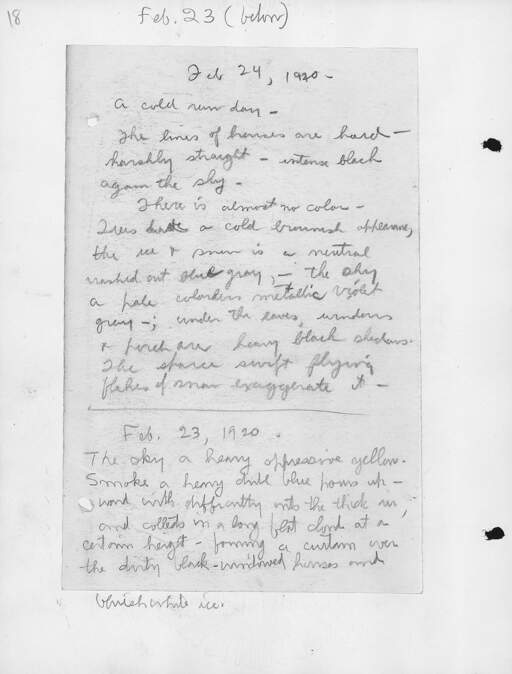 18
Feb. 23 (below)
Feb 24, 1920 -
A cold raw day -
The lines of houses are hard -
harshly straight - intense black
again the sky -
There is almost no color -
Trees a cold brownish appearance,
the ice & snow is a neutral
washed out blue gray, - the sky
a pale colorless metallic violet
grey -; under the eaves, windows
& porch are heavy black shadows.
The sparce swift flying
flakes of snow exaggerate it -
Feb. 23, 1920.
The sky a heavy oppressive yellow.
Smoke a heavy dull blue pours up -
ward with difficulty into the thick air,
and collects in a long flat cloud at a
certain height - forming a curtain over
the dirty black-windowed houses and
bluish white ice.